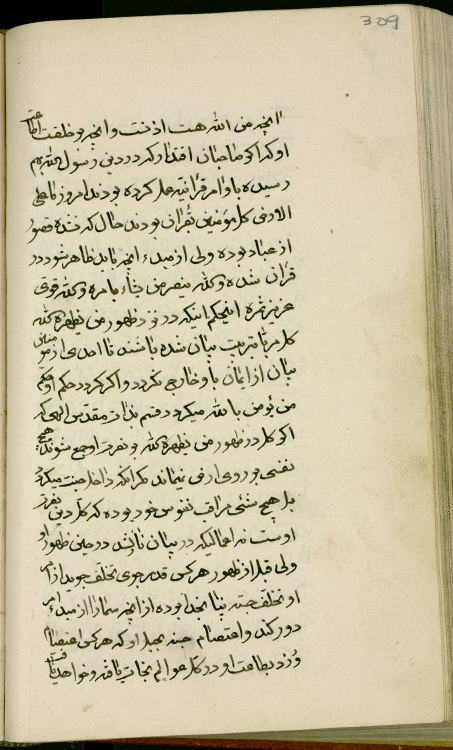 309
انچه من الله هست اذنت و انچه وظفت اطاعت
او که اگر صاحبان اقتدار که در دین رسول الله بهم
رسیده با وامر قرآنیه عمل کرده بودند امروز ما علی
الارض کل مؤمنین بقرآن بودند حال که نشده قصور
از عباد بوده ولی از مبدء انچه باید ظاهر شود در
قرآن شده و الله ینصر من یشاء بامره والله قوی
عزیز ثمره این حکم اینکه در نزد ظهور من یظهره الله
کل مربا بتربیت بیان شده باشند تا احدی از مؤمنین
بیان از ایمان باو خارج نگردد و اگر گردد حکم او حکم
من یؤمن بالله میگردد قسم بذات مقدس الهی که
اگر کل در ظهور من یظهره الله بنصرت او جمع شوند هیچ
نفسی بر روی ارض نمیماند مگر آنکه داخل جنت میگردد
بل هیچ شئی مراقب نفوس خود بوده که کل دین نصرت
اوست نه اعمالیکه در بیان نازل شده در حین ظهور او
ولی قبل از ظهور هر کس قدر جوی تخلف جوید از امر
او تخلف جسته پناه بخدا بوده از انچه شما را از مبدء امر
دور کند و اعتصام جسته بحبل او که هر کس اعتصام
ورزد بطاعت او در کل عوالم نجات یافته و خواهد یافت